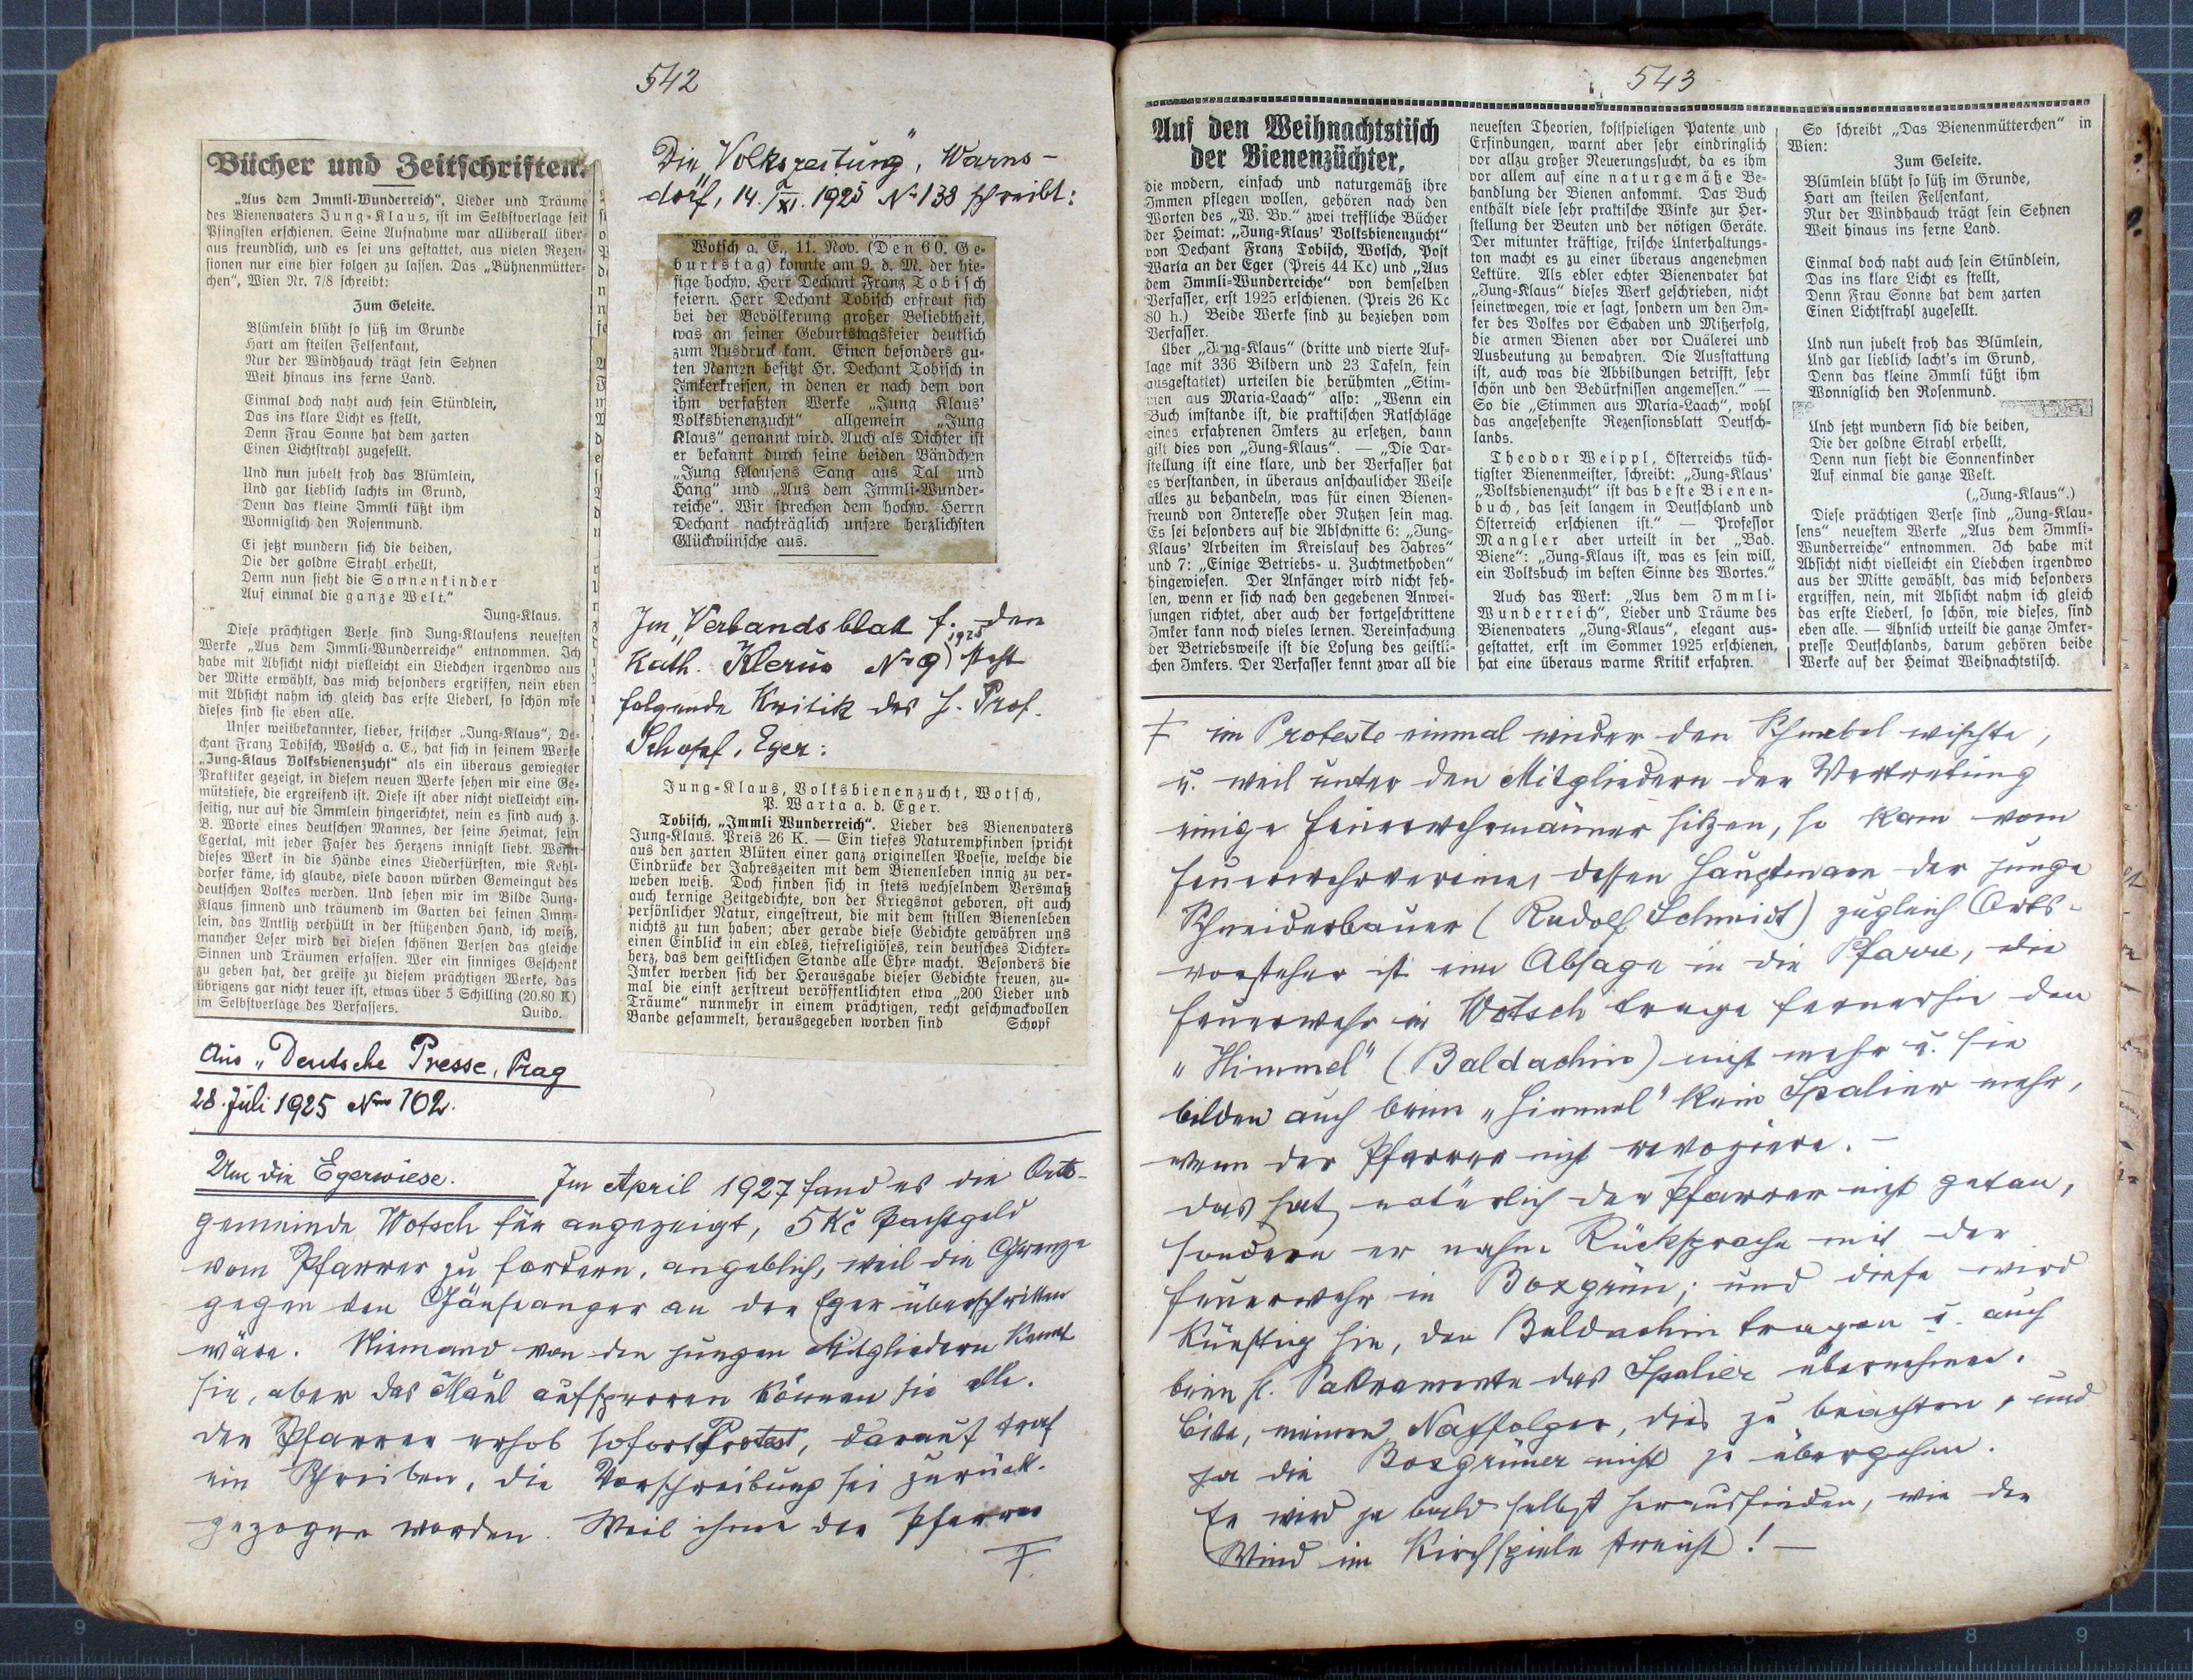 542
Bücher und Zeitschriften.
„Aus dem Immli-Wunderreich“, Lieder und Träume
des Bienenvaters Jung-Klaus, ist im Selbstverlage seit
Pfingsten erschienen. Seine Aufnahme war allüberall über-
aus freundlich, und es sei uns gestattet, aus vielen Rezen-
sionen nur eine hier folgen zu lassen. Das „Bühnenmütter-
chen“, Wien Nr. 7/8 schreibt:
Zum Geleite.
Blümlein blüht so süß im Grunde
Hart am steilen Felsenkant,
Nur der Windhauch trägt sein Sehnen
Weit hinaus ins ferne Land.
Einmal doch naht auch sein Stündlein,
Das ins klare Licht es stellt,
Denn Frau Sonne hat dem zarten
Einen Lichtstrahl zugesellt.
Und nun jubelt froh das Blümlein,
Und gar lieblich lachts im Grund,
Denn das kleine Immli küßt ihm
Wonniglich den Rosenmund.
Ei jetzt wundern sich die beiden,
Die der goldne Strahl erhellt,
Denn nun sieht die Sonnenkinder
Auf einmal die ganze Welt.“
Jung-Klaus.
Diese prächtigen Verse sind Jung-Klausens neuesten
Werke „Aus dem Immli-Wunderreiche“ entnommen. Ich
habe mit Absicht nicht vielleicht ein Liedchen irgendwo aus
der Mitte erwählt, das mich besonders ergriffen, nein eben
mit Absicht nahm ich gleich das erste Liederl, so schön wie
dieses sind sie eben alle.
Unser weitbekannter, lieber, frischer „Jung-Klaus“, De-
chant Franz Tobisch, Wotsch a. E., hat sich in seinem Werke
„Jung-Klaus Volksbienenzucht“ als ein überaus gewiegter
Praktiker gezeigt, in diesem neuen Werke sehen wir eine Ge-
mütstiefe, die ergreifend ist. Diese ist aber nicht vielleicht ein-
seitig, nur auf die Immlein hingerichtet, nein es sind auch z.
B. Worte eines deutschen Mannes, der seine Heimat, sein
Egertal, mit jeder Faser des Herzens innigst liebt. Wenn
dieses Werk in die Hände eines Liederfürsten, wie Kehl-
dorfer käme, ich glaube, viele davon würden Gemeingut des
deutschen Volkes werden. Und sehen wir im Bilde Jung-
Klaus sinnend und träumend im Garten bei seinen Imm-
lein, das Antlitz verhüllt in der stützenden Hand, ich weiß,
mancher Leser wird bei diesen schönen Versen das gleiche
Sinnen und Träumen erfassen. Wer ein sinniges Geschenk
zu geben hat, der greife zu diesem prächtigen Werke, das
übrigens gar nicht teuer ist, etwas über 5 Schilling (20.80 K)
im Selbstverlage des Verfassers.
Quido.
Aus „Deutsche Presse, Prag
28. Juli 1925 Nro 102.
Die „Volkszeitung“, Warns-
dorf, 14./XI. 1925 No 138 schreibt:
Wotsch a. E., 11. Nov. (Den 60. Ge-
burtstag) konnte am 9. d. M. der hie-
sige hochw. Herr Dechant Franz Tobisch
feiern. Herr Dechant Tobisch erfreut sich
bei der Bevölkerung großer Beliebtheit,
was an seiner Geburtstagsfeier deutlich
zum Ausdruck kam. Einen besonders gu-
ten Namen besitzt Hr. Dechant Tobisch in
Imkerkreisen, in denen er nach dem von
ihm verfaßten Werke „Jung Klaus'
Volksbienenzucht“ allgemein „Jung
Klaus“ genannt wird. Auch als Dichter ist
er bekannt durch seine beiden Bändchen
„Jung Klausens Sang aus Tal und
Hang“ und „Aus dem Immli-Wunder-
reiche“. Wir sprechen dem hochw. Herrn
Dechant nachträglich unsere herzlichsten
Glückwünsche aus.
Im „Verbandsblatt f. den
Kath. Klerus No 9 1925 steht
folgende Kritik des H. Prof.
Schopf, Eger:
Jung-Klaus, Volksbienenzucht, Wotsch,
P. Warta a. d. Eger.
Tobisch, „Immli Wunderreich“. Lieder des Bienenvaters
Jung-Klaus. Preis 26 K. — Ein tiefes Naturempfinden spricht
aus den zarten Blüten einer ganz originellen Poesie, welche die
Eindrücke der Jahreszeiten mit dem Bienenleben innig zu ver-
weben weiß. Doch finden sich in stets wechselndem Versmaß
auch kernige Zeitgedichte, von der Kriegsnot geboren, oft auch
persönlicher Natur, eingestreut, die mit dem stillen Bienenleben
nichts zu tun haben; aber gerade diese Gedichte gewähren uns
einen Einblick in ein edles, tiefreligiöses, rein deutsches Dichter-
herz, das dem geistlichen Stande alle Ehre macht. Besonders die
Imker werden sich der Herausgabe dieser Gedichte freuen, zu-
mal die einst zerstreut veröffentlichten etwa „200 Lieder und
Träume“ nunmehr in einem prächtigen, recht geschmackvollen
Bande gesammelt, herausgegeben worden sind
Schopf
Um die Egerwiese. Im April 1927 fand es die Orts-
gemeinde Wotsch für angezeigt, 5 Kč Pachtgeld
vom Pfarrer zu fordern, angeblich, weil die Grenze
gegen den Gänseanger an der Eger überschritten
wäre. Niemand von den jungen Mitgliedern kennt
sie, aber das Maul aufsperren können sie alle.
Der Pfarrer erhob sofort Protest, darauf traf
ein Schreiben, die Vorschreibung sei zurück-
gezogen worden. Weil ihnen der Pfarrer
543
Auf den Weihnachtstisch
der Bienenzüchter,
die modern, einfach und naturgemäß ihre
Immen pflegen wollen, gehören nach den
Worten des „W. Bv.“ zwei treffliche Bücher
der Heimat: „Jung-Klaus' Volksbienenzucht“
von Dechant Franz Tobisch, Wotsch, Post
Warta an der Eger (Preis 44 Kc) und „Aus
dem Immli-Wunderreiche“ von demselben
Verfasser, erst 1925 erschienen. (Preis 26 Kc
80 h.) Beide Werke sind zu beziehen vom
Verfasser.
Über „Jung-Klaus“ (dritte und vierte Auf-
lage mit 336 Bildern und 23 Tafeln, fein
ausgestattet) urteilen die berühmten „Stim-
men aus Maria-Laach“ also: „Wenn ein
Buch imstande ist, die praktischen Ratschläge
eines erfahrenen Imkers zu ersetzen, dann
gilt dies von „Jung-Klaus“. — „Die Dar-
stellung ist eine klare, und der Verfasser hat
es verstanden, in überaus anschaulicher Weise
alles zu behandeln, was für einen Bienen-
freund von Interesse oder Nutzen sein mag.
Es sei besonders auf die Abschnitte 6: „Jung-
Klaus' Arbeiten im Kreislauf des Jahres“
und 7: „Einige Betriebs- u. Zuchtmethoden“
hingewiesen. Der Anfänger wird nicht feh-
len, wenn er sich nach den gegebenen Anwei-
sungen richtet, aber auch der fortgeschrittene
Imker kann noch vieles lernen. Vereinfachung
der Betriebsweise ist die Losung des geistli-
chen Imkers. Der Verfasser kennt zwar all die
neuesten Theorien, kostspieligen Patente und
Erfindungen, warnt aber sehr eindringlich
vor allzu großer Neuerungssucht, da es ihm
vor allem auf eine naturgemäße Be-
handlung der Bienen ankommt. Das Buch
enthält viele sehr praktische Winke zur Her-
stellung der Beuten und der nötigen Geräte.
Der mitunter kräftige, frische Unterhaltungs-
ton macht es zu einer überaus angenehmen
Lektüre. Als edler echter Bienenvater hat
„Jung-Klaus“ dieses Werk geschrieben, nicht
seinetwegen, wie er sagt, sondern um den Im-
ker des Volkes vor Schaden und Mißerfolg,
die armen Bienen aber vor Quälerei und
Ausbeutung zu bewahren. Die Ausstattung
ist, auch was die Abbildungen betrifft, sehr
schön und den Bedürfnissen angemessen.“ —
So die „Stimmen aus Maria-Laach“, wohl
das angesehenste Rezensionsblatt Deutsch-
lands.
Theodor Weippl, Österreichs tüch-
tigster Bienenmeister, schreibt: „Jung-Klaus'
„Volksbienenzucht“ ist das beste Bienen-
buch, das seit langem in Deutschland und
Österreich erschienen ist.“ — Professor
Mangler aber urteilt in der „Bad.
Biene“: „Jung-Klaus ist, was es sein will,
ein Volksbuch im besten Sinne des Wortes.“
Auch das Werk: „Aus dem Immli-
Wunderreich“, Lieder und Träume des
Bienenvaters „Jung-Klaus“, elegant aus-
gestattet, erst im Sommer 1925 erschienen,
hat eine überaus warme Kritik erfahren.
So schreibt „Das Bienenmütterchen“ in
Wien:
Zum Geleite.
Blümlein blüht so süß im Grunde,
Hart am steilen Felsenkant,
Nur der Windhauch trägt sein Sehnen
Weit hinaus ins ferne Land.
Einmal doch naht auch sein Stündlein,
Das ins klare Licht es stellt,
Denn Frau Sonne hat dem zarten
Einen Lichtstrahl zugesellt.
Und nun jubelt froh das Blümlein,
Und gar lieblich lacht's im Grund,
Denn das kleine Immli küßt ihm
Wonniglich den Rosenmund.
Und jetzt wundern sich die beiden,
Die der goldne Strahl erhellt,
Denn nun sieht die Sonnenkinder
Auf einmal die ganze Welt.
(„Jung-Klaus“.)
Diese prächtigen Verse sind „Jung-Klau-
sens“ neuestem Werke „Aus dem Immli-
Wunderreiche“ entnommen. Ich habe mit
Absicht nicht vielleicht ein Liedchen irgendwo
aus der Mitte gewählt, das mich besonders
ergriffen, nein, mit Absicht nahm ich gleich
das erste Liederl, so schön, wie dieses, sind
eben alle. — Ähnlich urteilt die ganze Imker-
presse Deutschlands, darum gehören beide
Werke auf der Heimat Weihnachtstisch.
im Proteste einmal wieder den Schnabel wischte,
u. weil unter den Mitgliedern der Vertretung
einige Feuerwehrmänner sitzen, so kam vom
Feuerwehrvereine, dessen Hauptmann der junge
Schneiderbauer (Rudolf Schmidt) zugleich Orts-
vorsteher ist eine Absage in die Pfarre, die
Feuerwehr in Wotsch trage fernerhin den
„Himmel“ (Baldachin) nicht mehr u. sie
bilden auch beim „Himmel“ kein Spalier mehr,
wenn der Pfarrer nicht revoziere. —
Das hat natürlich der Pfarrer nicht getan,
sondern er nahm Rücksprache mit der
Feuerwehr in Boxgrün; und diese wird
künftig hin, den Baldachin tragen u. auch
beim hl. Sakramente das Spalier übernehmen.
Bitte, meinen Nachfolger, dies zu beachten, und
ja die Boxgrüner nicht zu übergehen.
Er wird ja bald selbst herausfinden, wie der
Wind im Kirchspiele streicht! —